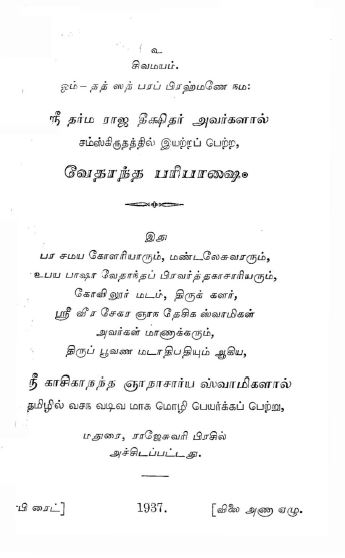 உ
சிவமயம்.
ஓம்-தத் ஸத் பரப் பிரஹ்மணே நம:
ஸ்ரீ தர்ம ராஜ தீக்ஷிதர் அவர்களால்
சம்ஸ்கிருதத்தில் இயற்றப் பெற்ற,
வேதாந்த பரிபாஷை.
இது
பர சமய கோளரியாரும், மண்டலேசுவாரும்,
உபய பாஷா வேதாந்தப் பிரவர்த்தகாசாரியரும்,
கோவிலூர் மடம், திருக் களர்,
ஸ்ரீ வீர சேகர ஞாந தேசிக ஸ்வாமிகள்
அவர்கள் மாணக்கரும்,
திருப் பூவண மடாதிபதியும் ஆகிய,
ஸ்ரீ காசிகாநந்த ஞாநாசார்ய ஸ்வாமிகளால்
தமிழில் வசந வடிவ மாக மொழி பெயர்க்கப் பெற்று,
மதுரை, ராஜேசுவரி பிரசில்
அச்சிடப்பட்டது.
பி ரைட்] 1937. [விலை அணா ஏழு.